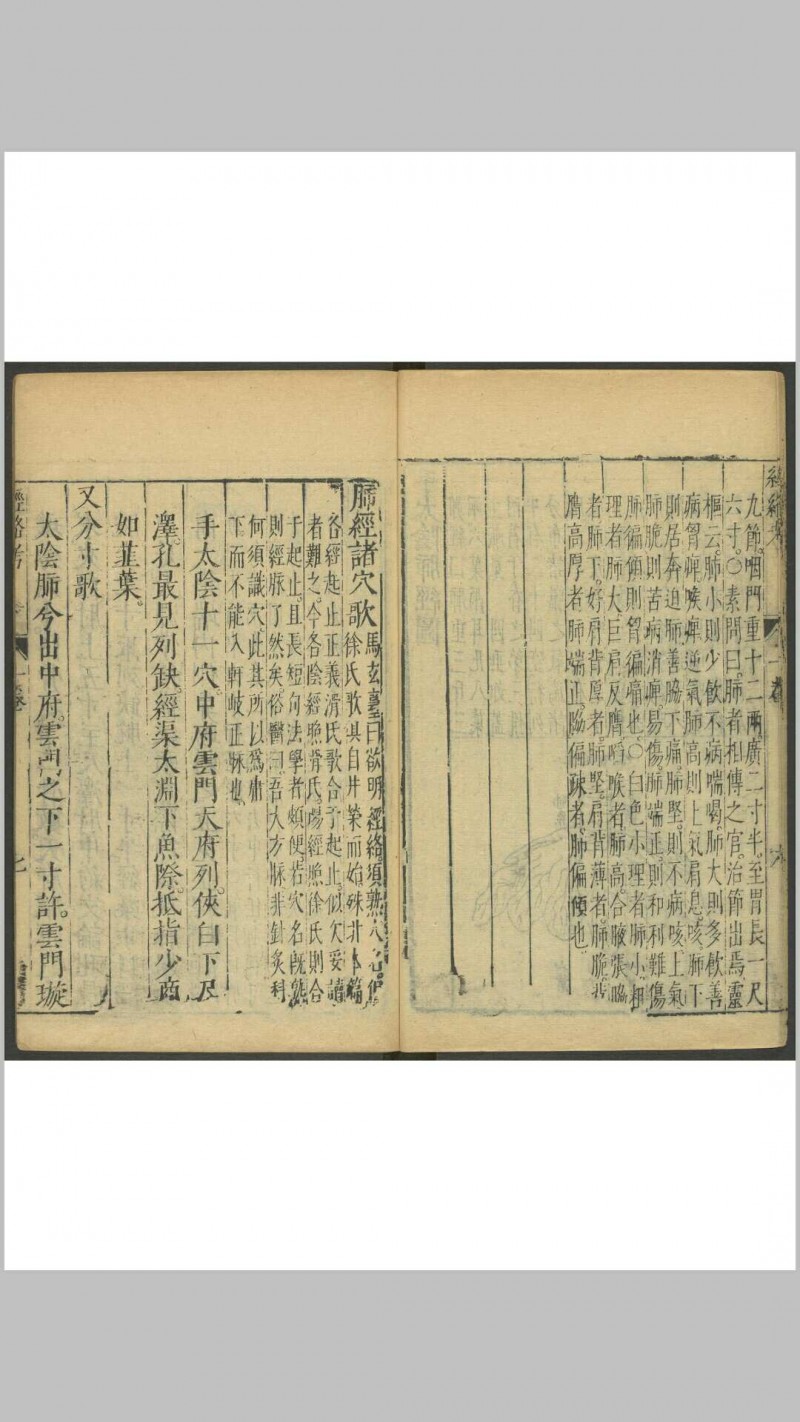 九節咽門重十二兩廣二寸半至胃長一尺
六寸○素問曰肺者相傳之官治節出焉靈
樞云肺小則少飲不病喘喝肺大則多飲善
病胷痺喉痺逆氣肺高則上氣肩息咳肺下
則居賁迫肺善脇下痛肺堅則不病咳上氣
肺脆則苦病消癉易傷肺端正則和利難傷
肺偏傾則胷偏痛也○白色小理者肺小粗
理者肺大巨肩反膺陷喉者肺高合腋張脇
者肺下好肩背厚者肺堅肩背薄者肺脆背
膺高厚者肺端正脇偏疎者肺偏傾也
一卷
六
肺經諸穴歌
馬玄臺曰欲明經絡須熟穴
徐氏歌俱自井滎而始殊非本篇
各經起止正義滑氏歌合于起止似欠妥讀
者難之今各陰經照滑氏陽經照徐氏則合
于起止且長短句法學者頗便若穴名既熟
則經脉了然矣俗醫曰吾大方脉非針灸科
何須識穴此其所以爲庸
下而不能入軒岐正脉也
手太陰十一穴中府雲門天府列俠白下尺
澤孔最見列缺經渠太淵下魚際抵指少商
如韮葉
又分寸歌
太陰肺兮出中府雲門之下一寸許雲門璇
經絡考
一卷
七